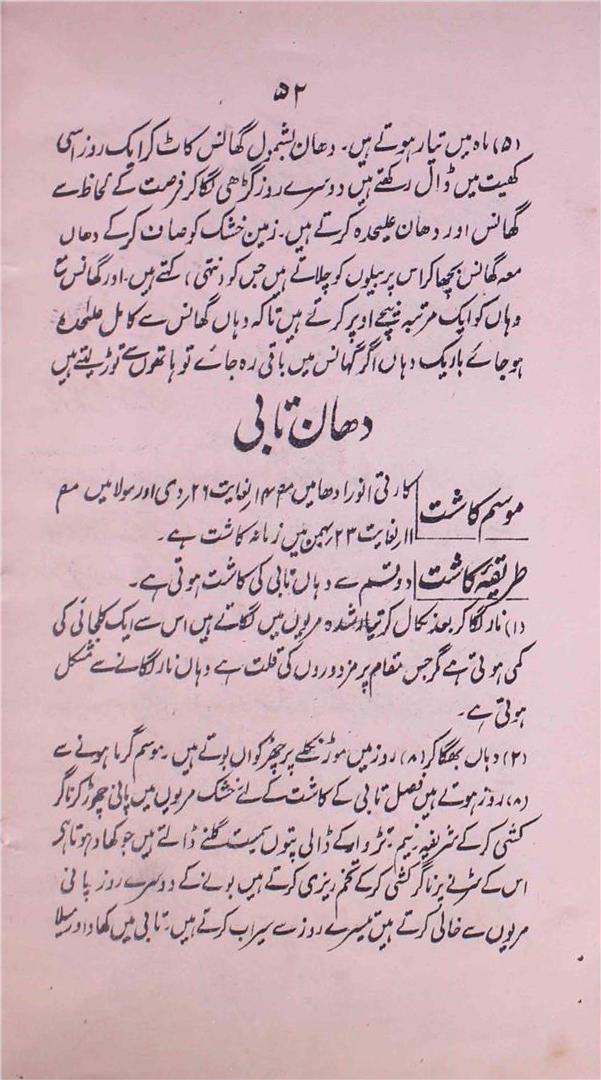 ۵۲
(۵) ماہ میں تیار ہوتے ہیں۔ دھان بشمول گھانس کاٹ کر ایک روز اسی
کھیت میں ڈال رکھتے ہیں دوسرے روز گڑھی لگا کر فرصت کے لحاظ سے
گھانس اور دھان علیحدہ کرتے ہیں۔ زمین خشک کو صاف کر کے دھان
معہ گھانس بچھا کر اس پر بیلوں کو چلاتے ہیں جس کو (نتی) کہتے ہیں۔ اور گھانس مع
وہاں کو ایک مرتبہ نیچے اوپر کرتے ہیں تاکہ دہاں گھانس سے کامل علیحدہ
ہو جائے باریک دہاں اگر گہانس میں باقی رہ جائے تو ہاتھوں سے توڑ لیتے ہیں
دھان تابی
موسم کاشت کارتی انورادھا میں ۱۴ لغایت ۲۶ دی اور سولا میں
۱۱ لغایت ۲۳ بہمن میں زمانہ کاشت ہے۔
طریقۂ کاشت دو قسم سے دہاں تابی کی کاشت ہوتی ہے۔
(۱) نار لگا کر بعد نکال کر تیار شدہ مریوں میں لگاتے ہیں اس سے ایک کلچائی کی
کمی ہوتی ہے گر جس مقام پر مزدوروں کی قلت ہے دہاں نار لگانے سے مشکل
ہوتی ہے۔
(۲) دہاں بھگا کر (۸) روز میں موڑ نکلے پر چھڑکواں بوتے ہیں۔ موسم گرما ہونے سے
(۸) روز ہوتے ہیں فصل تابی کے کاشت کے لئے خشک مریوں میں پانی چھوڑ کر ناگر
کشی کر کے شریفہ نیم تڑوار کے ڈالی پتوں سمیت گلنے ڈالتے ہیں جو کھاد ہوتا ہے
اس کے سڑنے پر ناگر کشی کر کے تخم ریزی کرتے ہیں بونے کے دوسرے روز پانی
مریوں سے خالی کرتے ہیں تیسرے روز سے سیراب کرتے ہیں۔ تابی میں کھاد اور